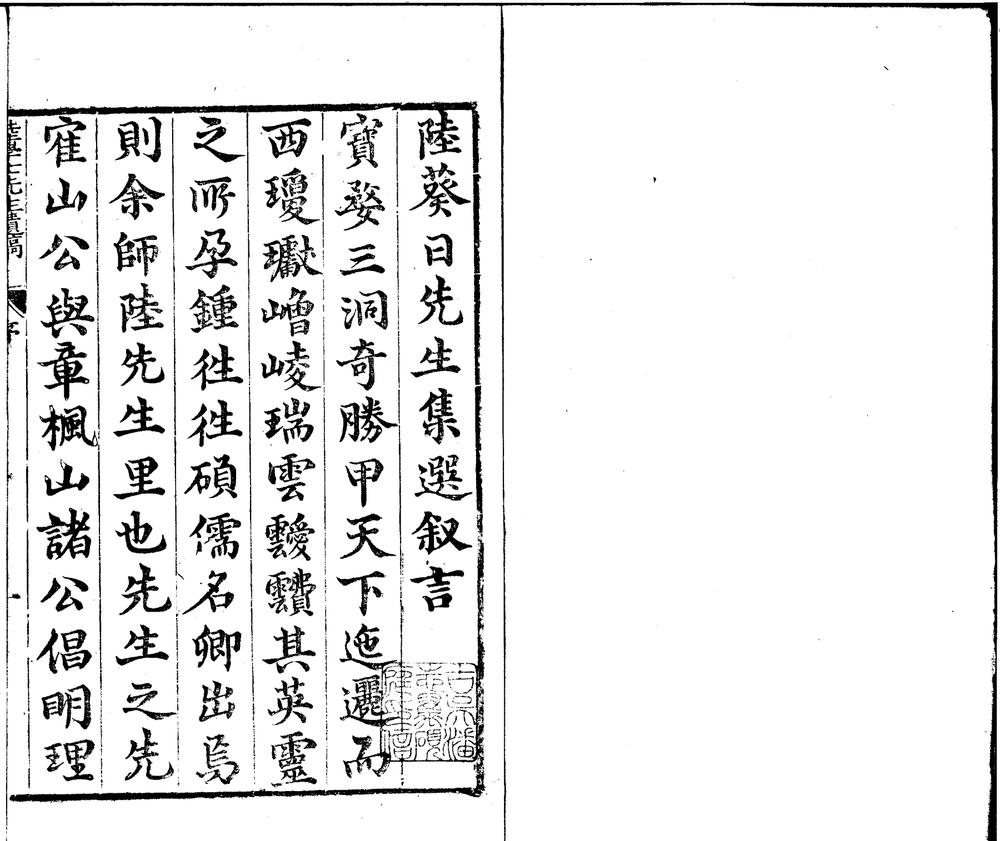 陸葵日先生集選叙言
寳婺三洞奇勝甲天下迤邐而
西瓊巘嶒崚瑞雲靉靅其英靈
之所孕鍾徃徃碩儒名卿出焉
則余師陸先生里也先生之先
寉山公與章楓山諸公倡明理
陸學士先生遺稿
序
一